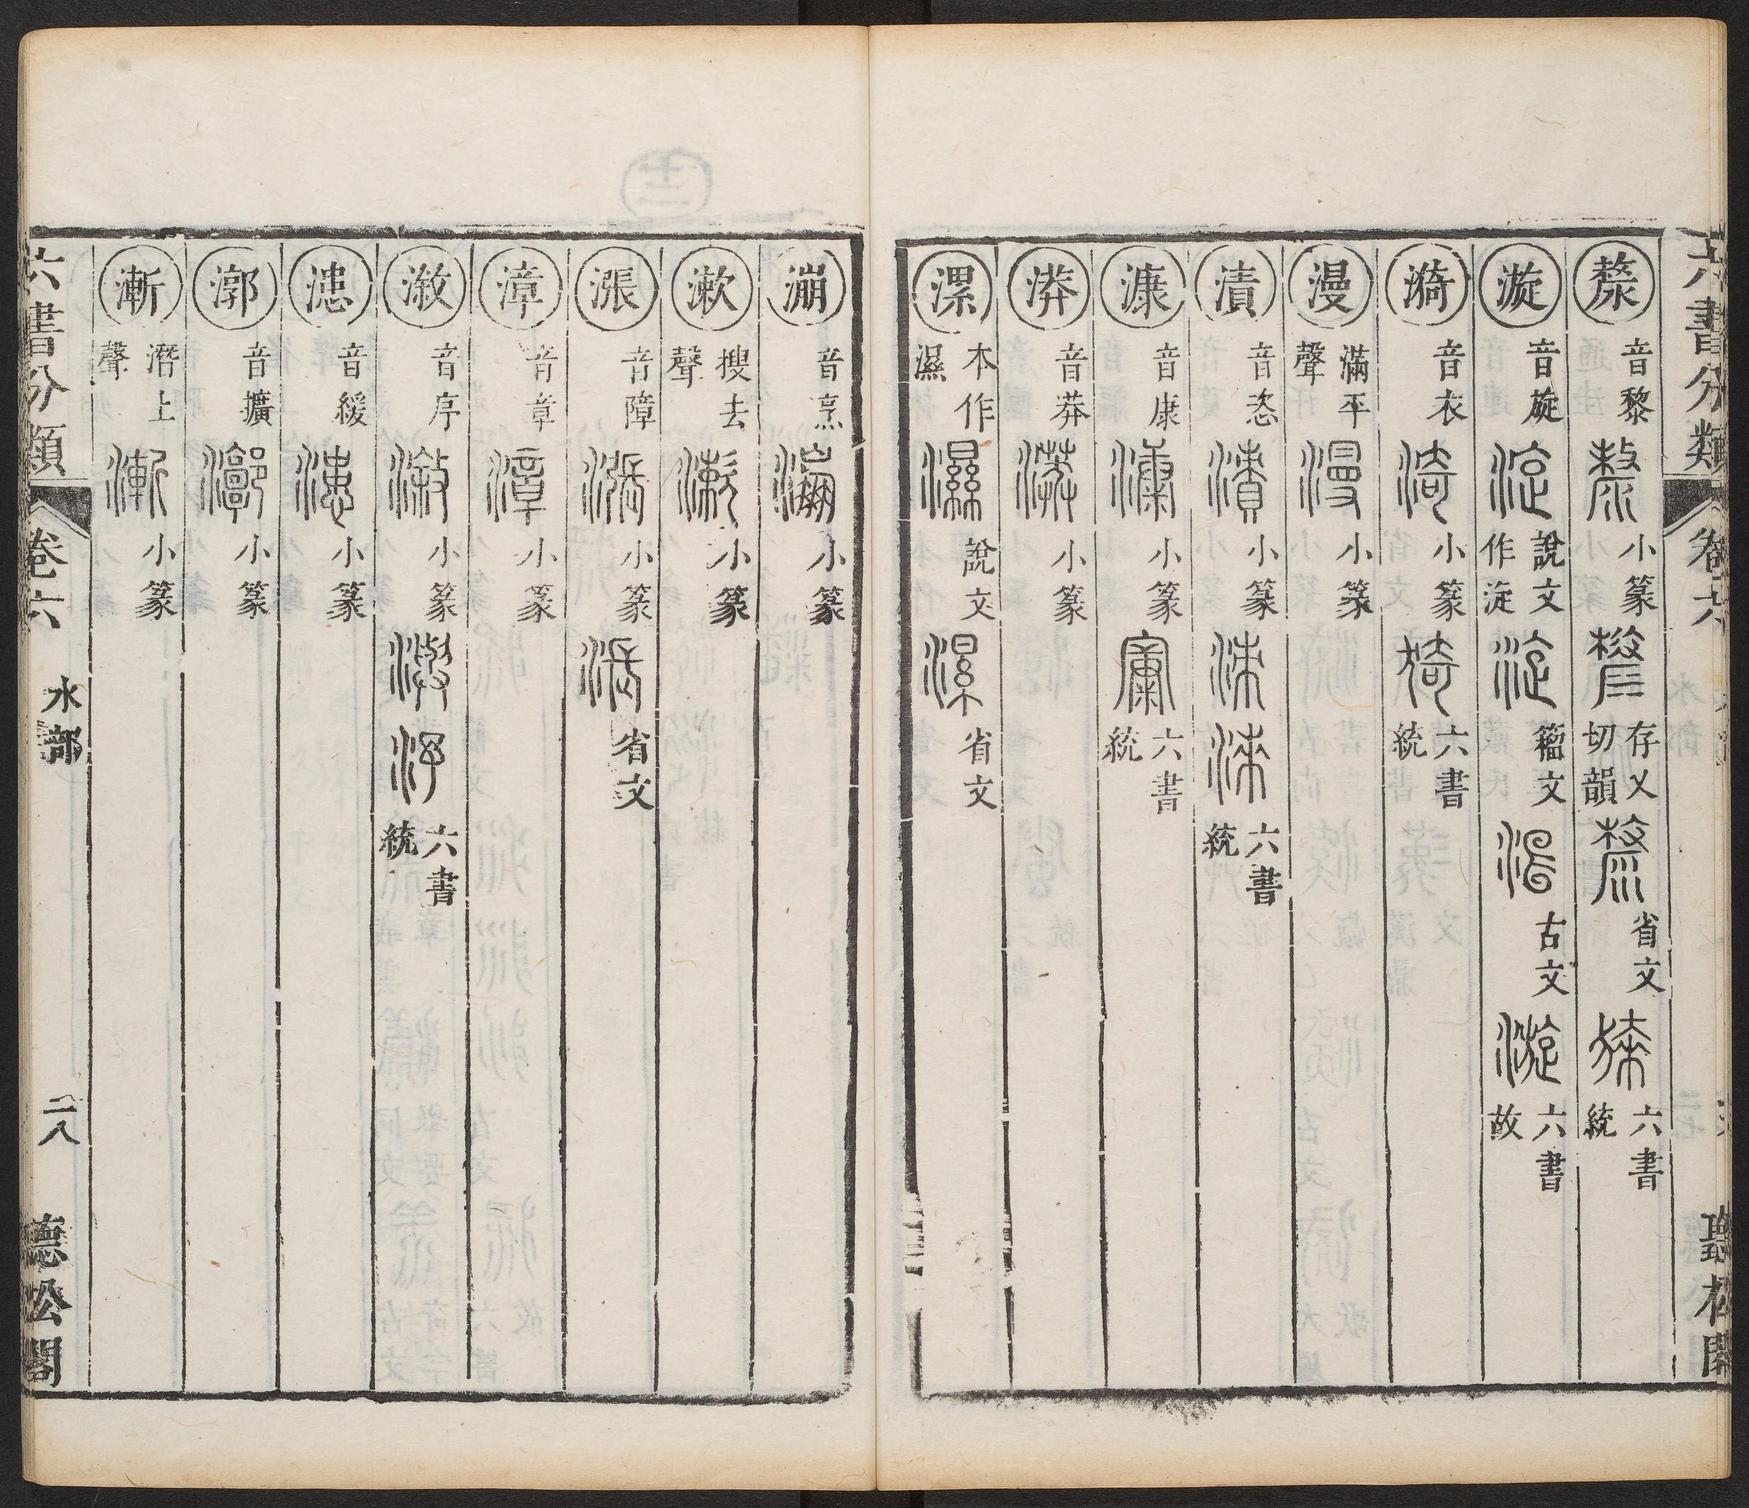 六書分類 卷六 聽松閣
漦 音黎 小篆 存乂切韻 省文 六書統
漩 音旋 說文作淀 籀文 古文 六書故
漪 音衣 小篆 六書統
漫 滿平聲 小篆
漬 音恣 小篆 六書統
漮 音康 小篆 六書統
漭 音莽 小篆
漯 本作濕 說文 省文
漰 音烹 小篆
漱 搜去聲 小篆
漲 音障 小篆 省文
漳 音章 小篆
漵 音序 小篆 六書統
漶 音緩 小篆
漷 音擴 小篆
漸 潛上聲 小篆
六書分類 卷六 水部 二八 聽松閣